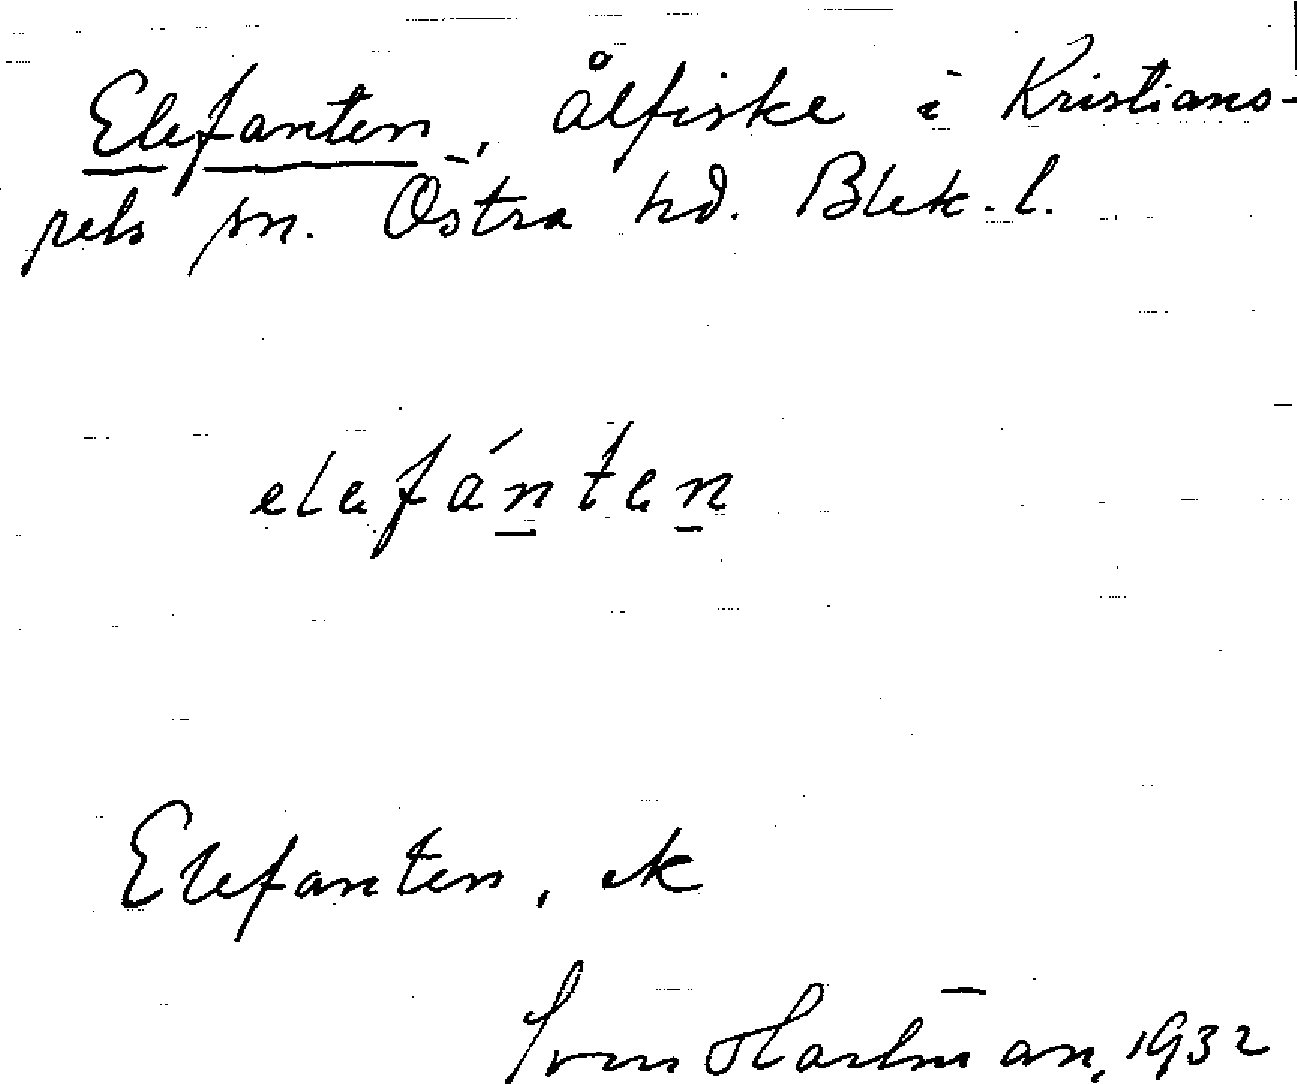 Elefanten, ålfiske i Kristiano-
pels sn. Östra hd. Blek. l.
elefánten
Elefanten, ek
Sven Hartman, 1932